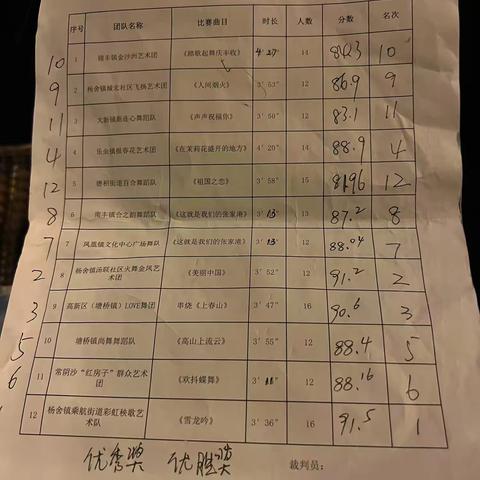 序号 团队名称 比赛曲目 时长 人数 分数 名次
10 1 锦丰镇金沙洲艺术团 《踏歌起舞庆丰收》 4′27″ 14 10
9 2 杨舍镇城北社区飞扬艺术团 《人间烟火》 3′53″ 12 86.9 9
11 3 大新镇新连心舞蹈队 《声声祝福你》 3′50″ 12 83.1 11
4 4 乐余镇报春花艺术团 《在茉莉花盛开的地方》 4′20″ 14 88.9 4
12 5 塘桥街道百合舞蹈队 《祖国之恋》 3′58″ 15 12
8 6 南丰镇合之韵舞蹈队 《这就是我们的张家港》 3′13″ 13 87.2 8
7 7 凤凰镇文化中心广场舞队 《这就是我们的张家港》 3′13″ 12 88.04 7
2 8 杨舍镇汤联社区火舞金凤艺术团 《美丽中国》 3′52″ 12 91.2 2
3 9 高新区（塘桥镇）LOVE舞团 串烧《上春山》 3′47″ 16 90.6 3
5 10 塘桥镇尚舞舞蹈队 《高山上流云》 3′55″ 12 88.4 5
6 11 常阴沙“红房子”群众艺术团 《欢抖蝶舞》 12 88.16 6
12 杨舍镇乘航街道彩虹秧歌艺术队 《雪龙吟》 3′36″ 16 91.5 1
优秀奖 优胜奖 裁判员：